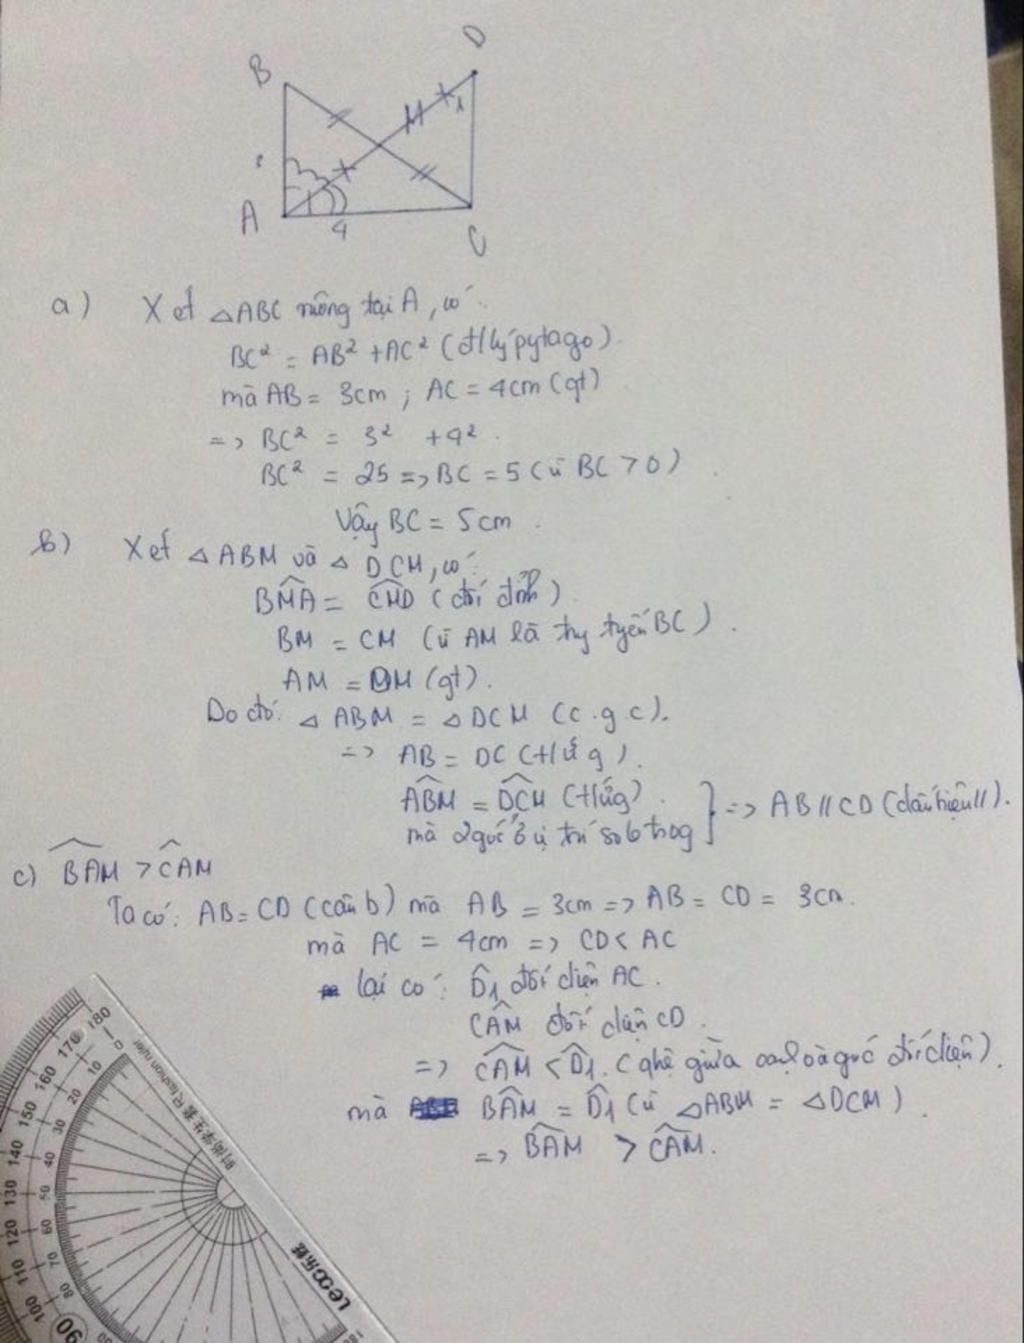 B
D
M
1
A
4
C
a) Xét △ABC vuông tại A, có:
BC² = AB² + AC² (đ/lý pytago).
mà AB = 3cm ; AC = 4cm (gt)
=> BC² = 3² + 4².
BC² = 25 => BC = 5 (vì BC > 0)
Vậy BC = 5cm.
b) Xét △ABM và △DCM, có:
BMA = CMD (đối đỉnh)
BM = CM (vì AM là tg tyến BC).
AM = DM (gt).
Do đó: △ABM = △DCM (c.g.c).
=> AB = DC (t/ứg).
ABM = DCM (t/ứg).
mà 2 góc ở vị trí solo trog
} => AB // CD (dấu hiệu //).
c) BAM > CAM
Ta có: AB = CD (câu b) mà AB = 3cm => AB = CD = 3cm.
mà AC = 4cm => CD < AC
lại có: D̂1 đối diện AC.
CAM đối diện CD.
=> CAM < D̂1. (qhệ giữa cạnh và góc đối diện).
mà BAM = D̂1 (vì △ABM = △DCM).
=> BAM > CAM.
180
170
160
150
140
130
120
100
90
0
10
20
30
40
50
60
70
80
Fashion ruler
时尚学生套尺
LeGO乐哦